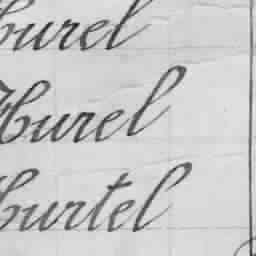 Hurel
Hurel
Hurtel